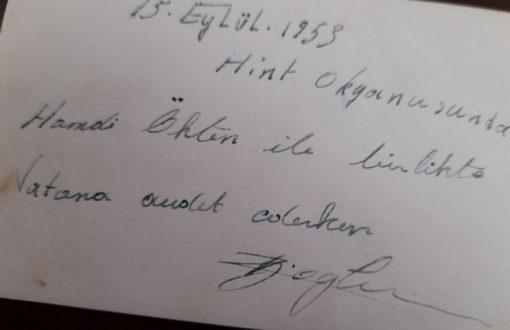 15. Eylül. 1953
Hint Okyanusunda
Hamdi Ökten ile birlikte
Vatana avdet ederken